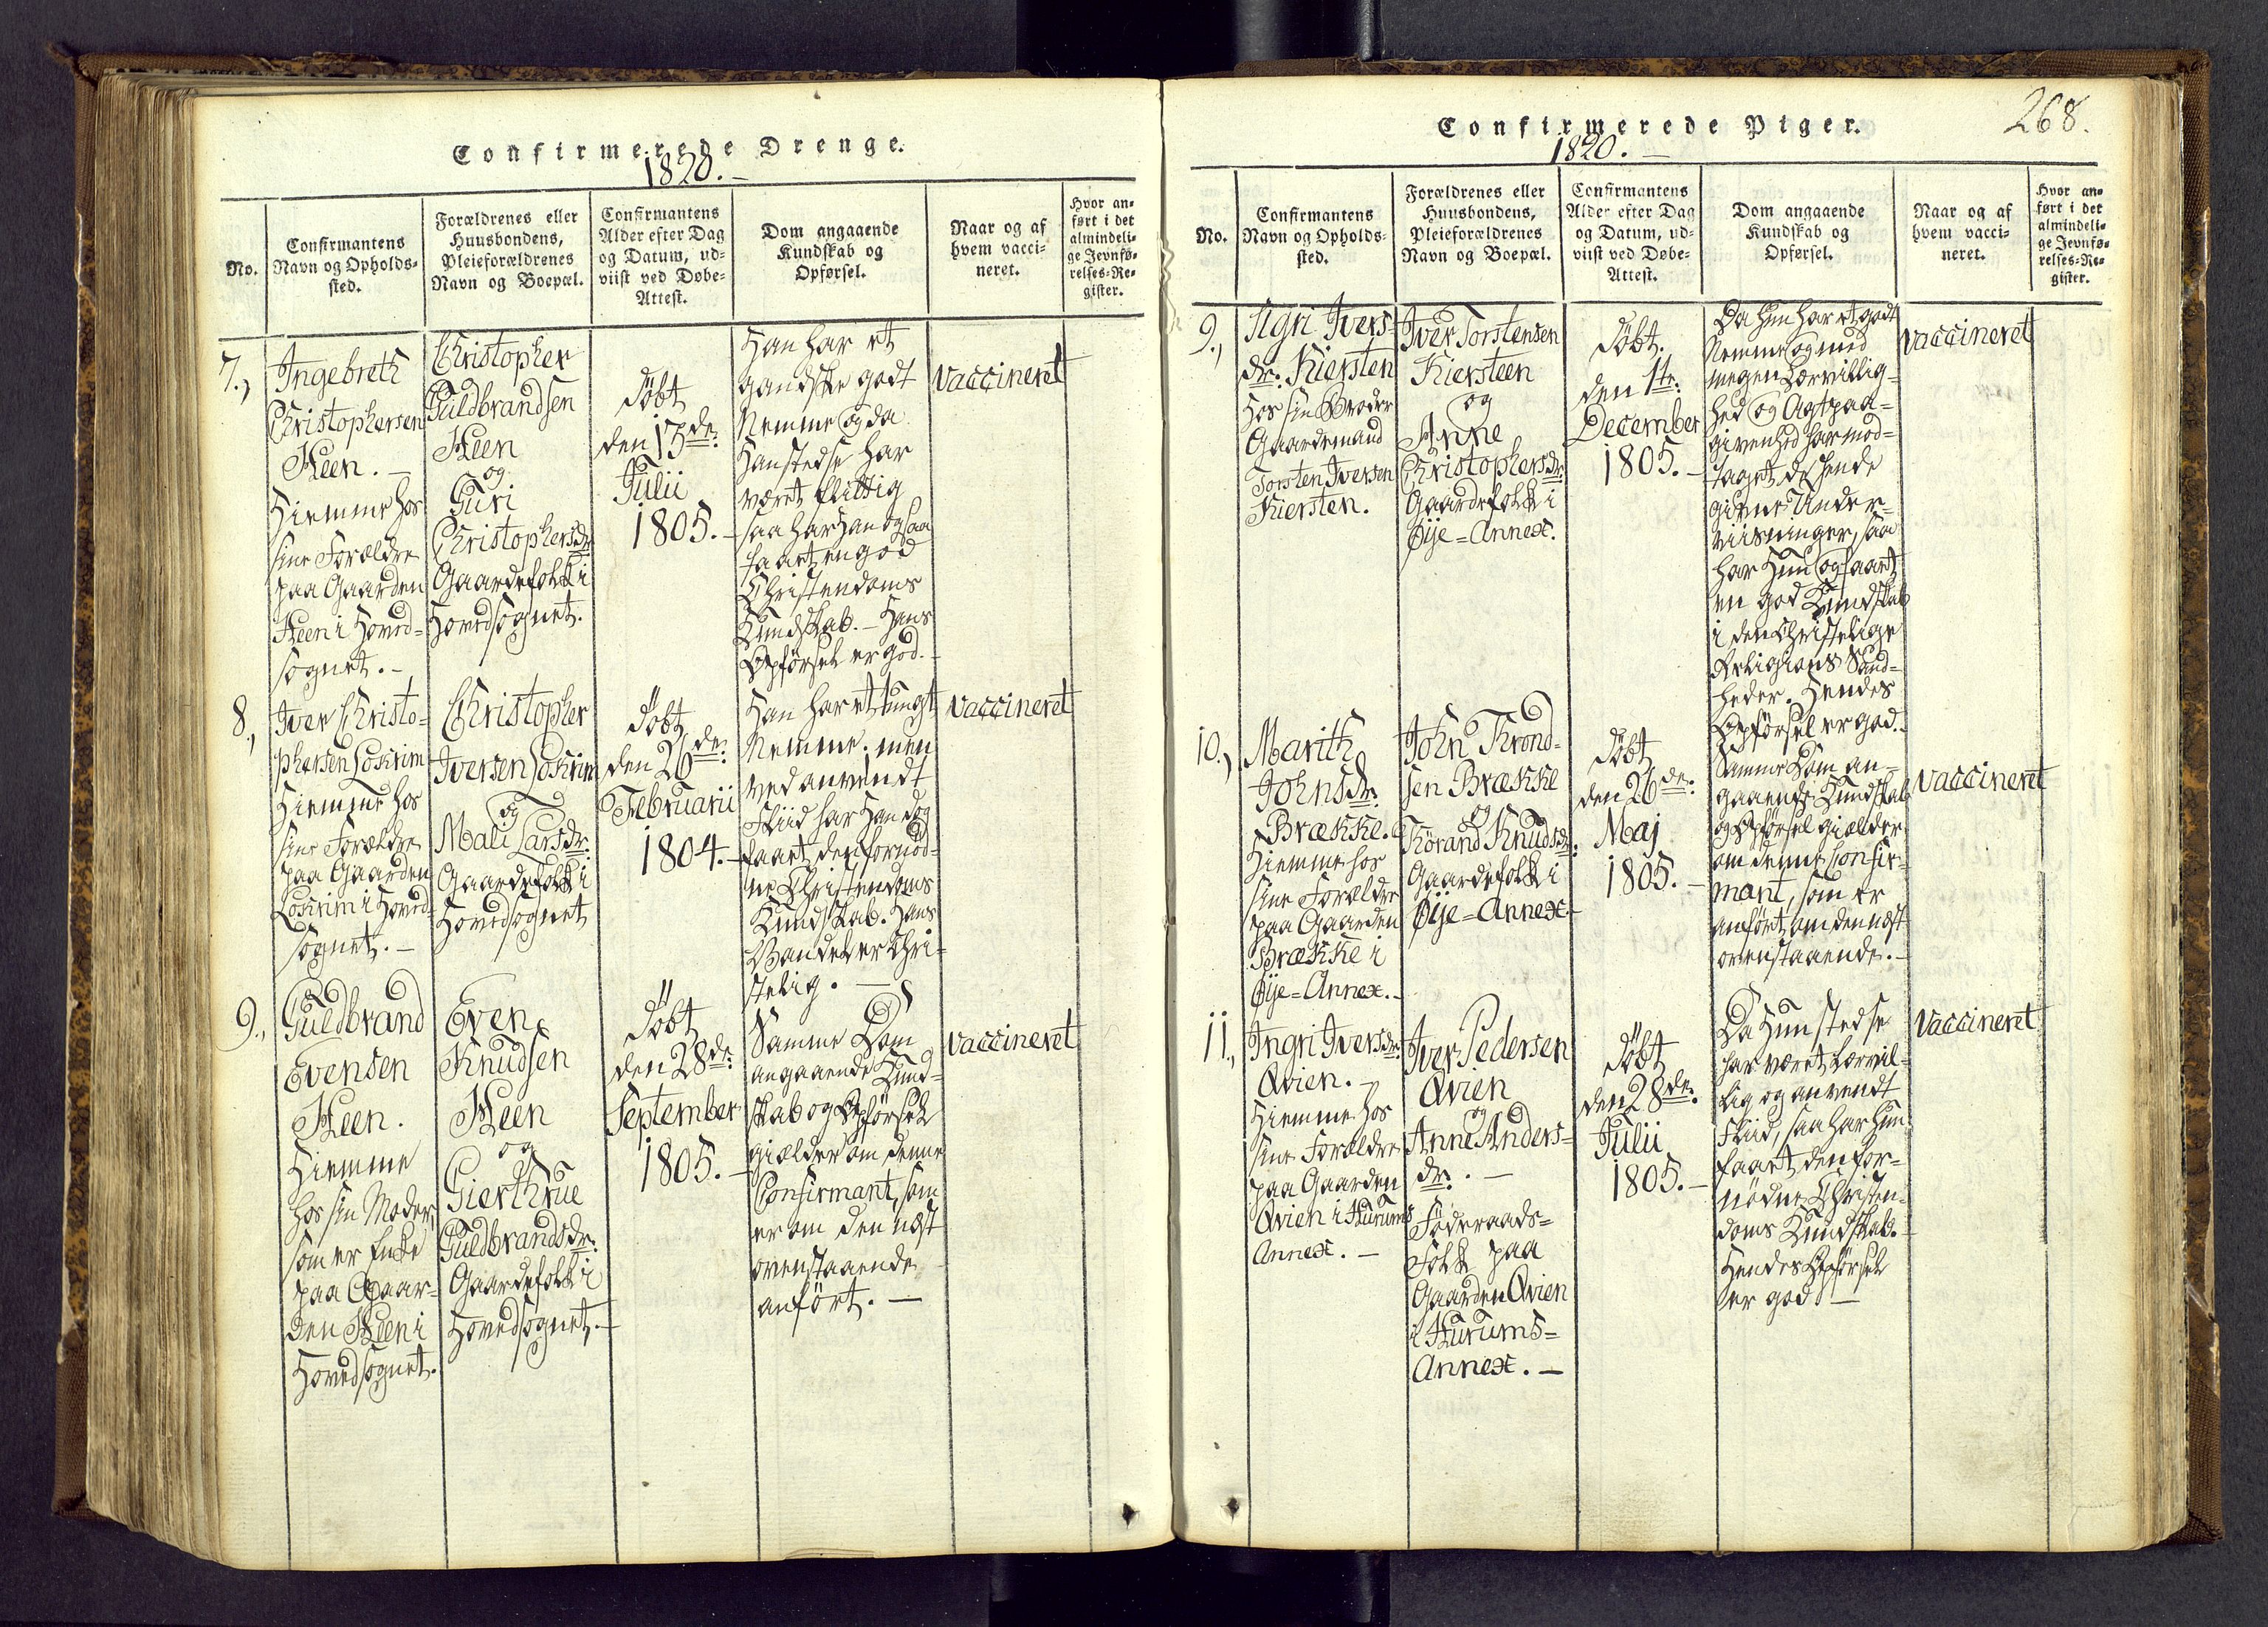 Confirmerede Drenge.
1820.
No.
Confirmantens
Navn og Opholds-
sted.
Forældrenes eller
Huusbondens,
Pleieforældrenes
Navn og Boepæl.
Confirmantens
Alder efter Dag
og Datum, ud-
viist ved Døbe-
Attest.
Dom angaaende
Kundskab og
Opførsel.
Naar og af
hvem vacci-
neret.
Hvor an-
ført i det
almindeli-
ge Jevnfø-
relses-Re-
gister.
7.,
Ingebreth
Christophersen
Heen. -
Hiemme hos
sine Forældre
paa Gaarden
Heen i Hoved-
sognet. -
Christopher
Guldbrandsen
Heen
og
Guri
Christophersdr.
Gaardefolk i
Hovedsognet.
Döbt
den 13de
Julii
1805. -
Han har et
gandske godt
Nemme og da
Han stedse har
været flittig
saa har Han ogsaa
faaet en god
Christendoms
Kundskab. - Hans
Opførsel er god. -
Vaccineret
8.,
Iver Christo-
phersen Loskrim
Hiemme hos
sine Forældre
paa Gaarden
Loskrim i Hoved-
sognet. -
Christopher
Iversen Loskrim
og
Mali Larsdr.
Gaardefolk i
Hovedsognet
Döbt
den 26de
Februarii
1804. -
Han har et tungt
Nemme, men
ved anvendt
Fliid har Han dog
faaet den fornöd-
ne Christendoms
Kundskab. Hans
Vandel er Chri-
stelig. -
Vaccineret
9.,
Guldbrand
Evensen
Heen.
Hiemme
hos sin Moder,
som er Enke
paa Gaar-
den Heen i
Hovedsognet.
Even
Knudsen
Heen
og
Gierthrue
Guldbrandsdr.
Gaardefolk i
Hovedsognet. -
Döbt
den 28de
September
1805. -
Samme Dom
angaaende Kund-
skab og Opførsel
giælder om denne
Confirmant, som
er om den næst
ovenstaaende
anført. -
Vaccineret
Confirmerede Piger.
1820. -
268.
No.
Confirmantens
Navn og Opholds-
sted.
Forældrenes eller
Huusbondens,
Pleieforældrenes
Navn og Boepæl.
Confirmantens
Alder efter Dag
og Datum, ud-
viist ved Døbe-
Attest.
Dom angaaende
Kundskab og
Opførsel.
Naar og af
hvem vacci-
neret.
Hvor an-
ført i det
almindeli-
ge Jevnfø-
relses-Re-
gister.
9.,
Sigri Ivers-
dr. Kiersten
Hos sin Broder
Gaardemand
Torsten Iversen
Kiersten.
Iver Torstensen
Kiersteen
og
Anne
Christophersdr.
Gaardefolk i
Öije=Annex.
Döbt.
den 1te
December
1805. -
Da Hun har et godt
Nemme og med
megen Lærvillig-
hed og Agtpaa-
givenhed har mod-
taget de hende
givne Under-
viisninger, saa
har Hun og faaet
en god Kundskab
i den Christelige
Religions Sand-
heder. Hendes
Opførsel er god.
Vaccineret
10.,
Marith
Johnsdr.
Brække.
Hiemme hos
sine Forældre
paa Gaarden
Brække i
Öije=Annex. -
John Trond-
sen Brække
og
Körand Knudsdr.
Gaardefolk i
Öije=Annex. -
Döbt
den 26de
Maj
1805. -
Samme Dom an-
gaaende Kundskab
og Opførsel giælder
om denne Confir-
mant, som er
anført om den næst
ovenstaaende. -
Vaccineret
11.,
Ingri Iversdr.
Qvien. -
Hiemme hos
sine Forældre
paa Gaarden
Qvien i Hurums
Annex. -
Iver Pedersen
Qvien
og
Anne Anders-
dr. -
Föderaads-
Folk paa
Gaarden Qvien
i Hurums-
Annex. -
Döbt
den 28de
Julii
1805. -
Da Hun stedse
har været lærvil-
lig og anvendt
Fliid, saa har Hun
faaet den for-
nödne Christen-
doms Kundskab.
Hendes Opførsel
er god -
Vaccineret